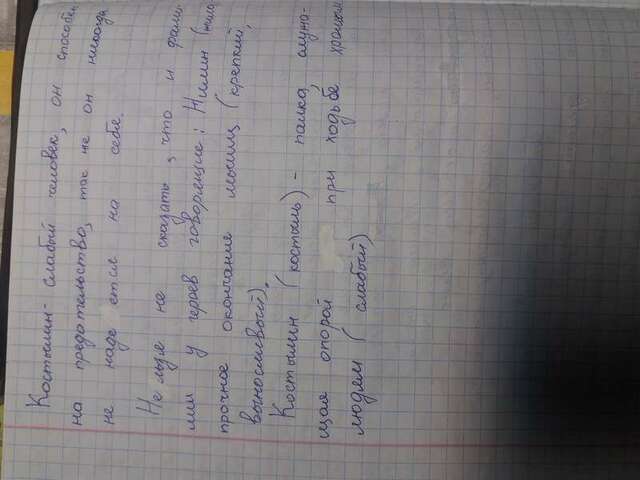 Костылин - слабый человек, он способен
на предательство, так же он никогда
не надеется на себя.
Нельзя не сказать, что и фами-
лии у героев говорящие: Жилин (жила
прочное окончание мышц (крепкий,
выносливый).
Костылин (костыль) - палка, служа-
щая опорой при ходьбе хромым
людям (слабый)